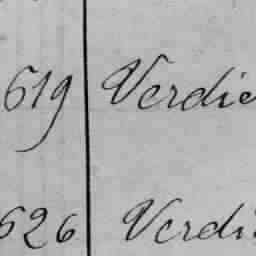 619 Verdie
626 Verdi